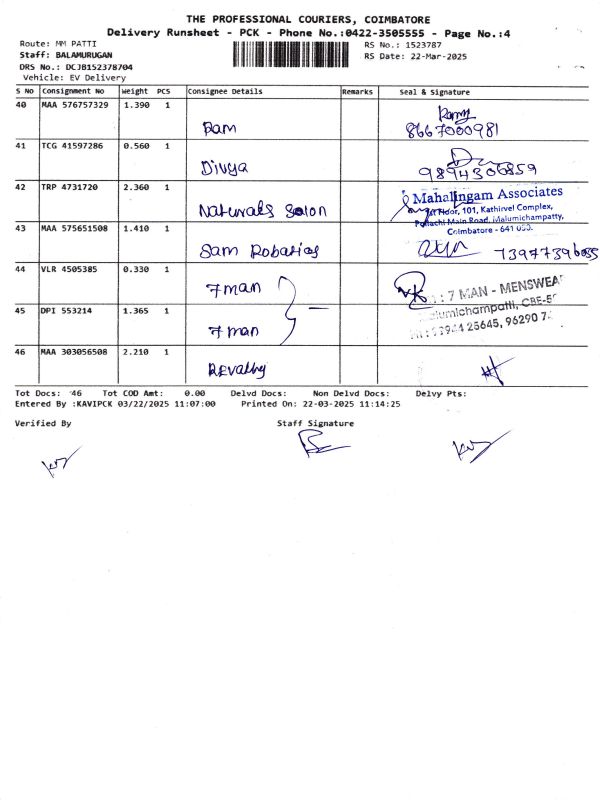 THE PROFESSIONAL COURIERS, COIMBATORE
Delivery Runsheet - PCK - Phone No.:0422-3505555 - Page No.:4
Route: MM PATTI
RS No.: 1523787
Staff: BALAMURUGAN
RS Date: 22-Mar-2025
DRS No.: DCJB152378704
Vehicle: EV Delivery
S No Consignment No Weight PCS Consignee Details Remarks Seal & Signature
40 MAA 576757329 1.390 1
Ram 8667000981
41 TCG 41597286 0.560 1
Divya 9894306859
42 TRP 4731720 2.360 1
Mahalingam Associates
Naturals Salon
1st Floor, 101, Kathirvel Complex,
Pollachi Main Road, Malumichampatty,
Coimbatore - 641 050.
43 MAA 575651508 1.410 1
Sam Robatics
44 VLR 4505385 0.330 1
7 man
: 7 MAN - MENSWEAR
45 DPI 553214 1.365 1
7 man
25645, 96290
46 MAA 303056508 2.210 1
Revathy
Tot Docs: 46 Tot COD Amt: 0.00 Delvd Docs: Non Delvd Docs: Delvy Pts:
Entered By :KAVIPCK 03/22/2025 11:07:00 Printed On: 22-03-2025 11:14:25
Verified By Staff Signature